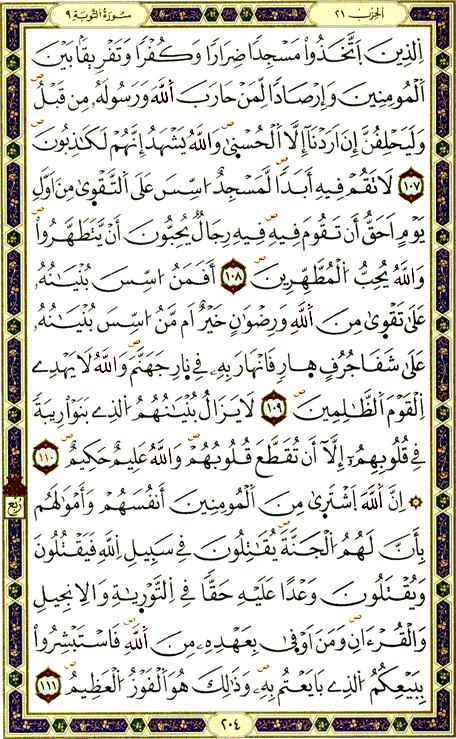 سُورَةُ التَّوْبَة ٩
الحِزْب ٢١
اِ۬لذِينَ اَ۪تَّخَذُواْ مَسْجِداٗ ضِرَاراٗ وَكُفْراٗ وَتَفْرِيقاَۢ بَيْنَ
اَ۬لْمُومِنِينَ وَإِرْصَاداٗ لِّمَنْ حَارَبَ اَ۬للَّهَ وَرَسُولَهُۥ مِن قَبْلُ
وَلَيَحْلِفُنَّ إِنَ اَرَدْنَآ إِلَّا اَ۬لْحُسْنۭىٰ وَاللَّهُ يَشْهَدُ إِنَّهُمْ لَكَٰذِبُونَ
١٠٧ لَا تَقُمْ فِيهِ أَبَداٗ لَّمَسْجِدٌ ا۟سِّسَ عَلَى اَ۬لتَّقْوۭىٰ مِنَ اَوَّلِ
يَوْمٍ اَحَقُّ أَن تَقُومَ فِيهِ فِيهِ رِجَالٞ يُحِبُّونَ أَنْ يَّتَطَهَّرُواْ
وَاللَّهُ يُحِبُّ اُ۬لْمُطَّهِّرِينَ ١٠٨ أَفَمَنُ ا۟سِّسَ بُنْيَٰنُهُۥ
عَلَىٰ تَقْوۭىٰ مِنَ اَ۬للَّهِ وَرِضْوَٰنٍ خَيْرٌ اَم مَّنُ ا۟سِّسَ بُنْيَٰنُهُۥ
عَلَىٰ شَفَا جُرُفٍ هِارٖ فَانْهَارَ بِهِۦ فِي نِارِ جَهَنَّمَ وَاللَّهُ لَا يَهْدِے
اِ۬لْقَوْمَ اَ۬لظَّٰلِمِينَ ١٠٩ لَا يَزَالُ بُنْيَٰنُهُمُ اُ۬لذِے بَنَوْاْ رِيبَةٗ
فِي قُلُوبِهِمُۥٓ إِلَّآ أَن تُقَطَّعَ قُلُوبُهُمْ وَاللَّهُ عَلِيمٌ حَكِيمٌ ١١٠
۞ إِنَّ اَ۬للَّهَ اَ۪شْتَر۪ىٰ مِنَ اَ۬لْمُومِنِينَ أَنفُسَهُمْ وَأَمْوَٰلَهُم
بِأَنَّ لَهُمُ اُ۬لْجَنَّةَ يُقَٰتِلُونَ فِي سَبِيلِ اِ۬للَّهِ فَيَقْتُلُونَ
وَيُقْتَلُونَ وَعْداً عَلَيْهِ حَقّاٗ فِي اِ۬لتَّوْر۪يٰةِ وَالِانجِيلِ
وَالْقُرْءَانِ وَمَنَ اَوْف۪ىٰ بِعَهْدِهِۦ مِنَ اَ۬للَّهِ فَاسْتَبْشِرُواْ
بِبَيْعِكُمُ اُ۬لذِے بَايَعْتُم بِهِۦ وَذَٰلِكَ هُوَ اَ۬لْفَوْزُ اُ۬لْعَظِيمُ ١١١
ربع
٢٠٤